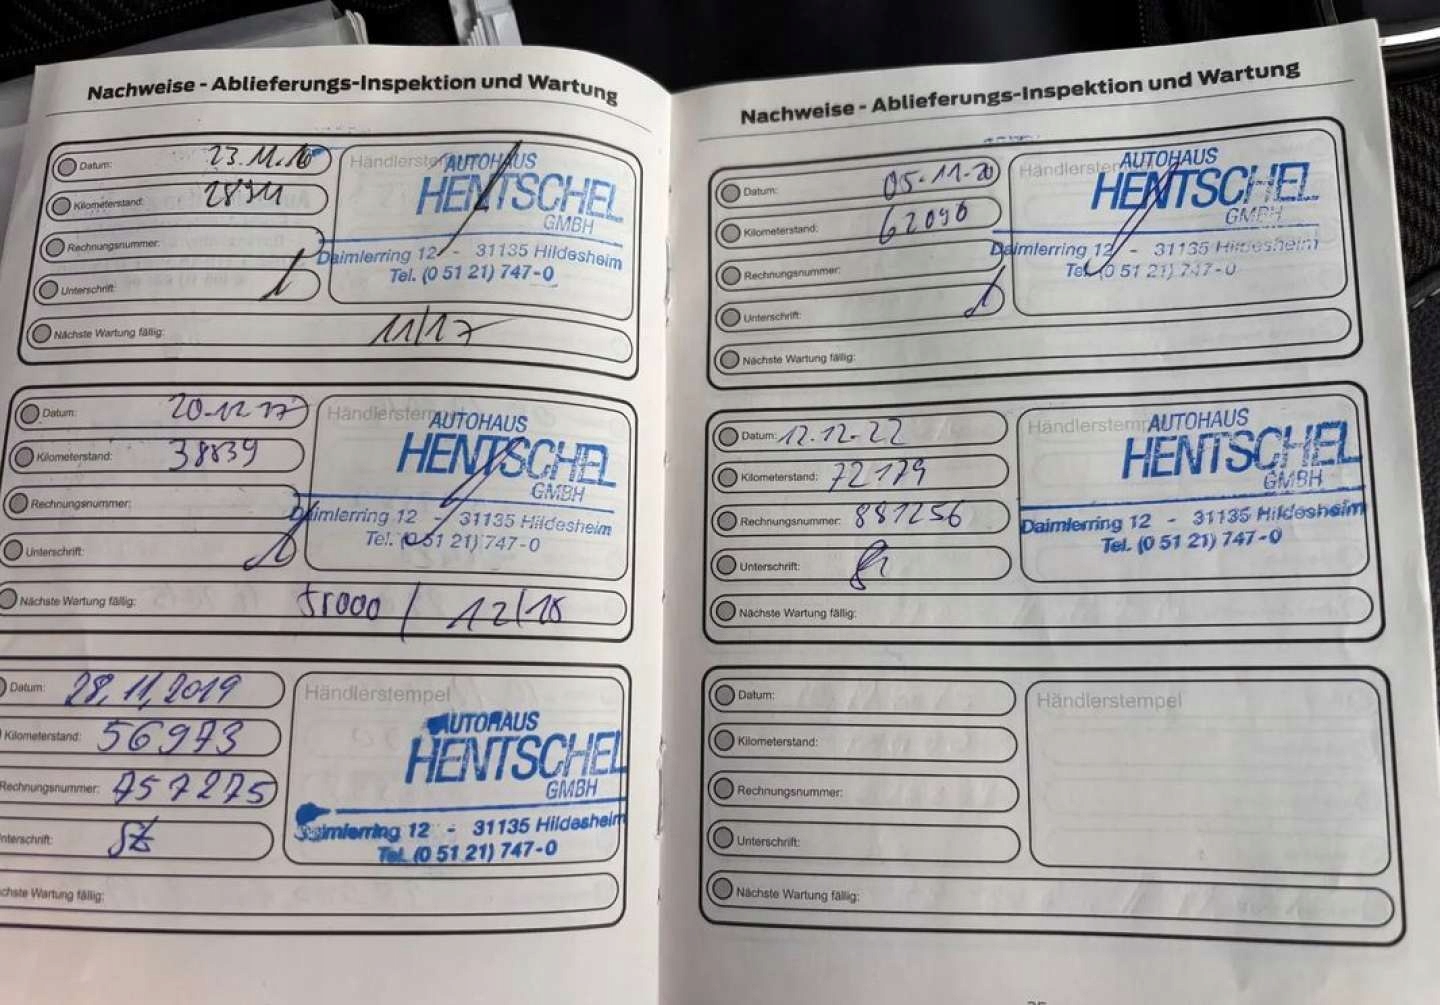 Nachweise - Ablieferungs-Inspektion und Wartung
Datum: 23.11.16
Kilometerstand: 28911
Rechnungsnummer:
Unterschrift:
Nächste Wartung fällig: 11/17
Händlerstempel
AUTOHAUS
HENTSCHEL
GMBH
Daimlerring 12 - 31135 Hildesheim
Tel. (0 51 21) 747-0
Datum: 20-12-17
Kilometerstand: 38839
Rechnungsnummer:
Unterschrift:
Nächste Wartung fällig: 51000 / 12/18
Händlerstempel
AUTOHAUS
HENTSCHEL
GMBH
Daimlerring 12 - 31135 Hildesheim
Tel. (0 51 21) 747-0
Datum: 28.11.2019
Kilometerstand: 56973
Rechnungsnummer: 757275
nterschrift:
chste Wartung fällig:
Händlerstempel
AUTOHAUS
HENTSCHEL
GMBH
Daimlerring 12 - 31135 Hildesheim
Tel. (0 51 21) 747-0
Nachweise - Ablieferungs-Inspektion und Wartung
Datum: 05-11-20
Kilometerstand: 62096
Rechnungsnummer:
Unterschrift:
Nächste Wartung fällig:
Händlerstempel
AUTOHAUS
HENTSCHEL
GMBH
Daimlerring 12 - 31135 Hildesheim
Tel. (0 51 21) 747-0
Datum: 12.12-22
Kilometerstand: 72179
Rechnungsnummer: 881256
Unterschrift:
Nächste Wartung fällig:
Händlerstempel
AUTOHAUS
HENTSCHEL
GMBH
Daimlerring 12 - 31135 Hildesheim
Tel. (0 51 21) 747-0
Datum:
Kilometerstand:
Rechnungsnummer:
Unterschrift:
Nächste Wartung fällig:
Händlerstempel